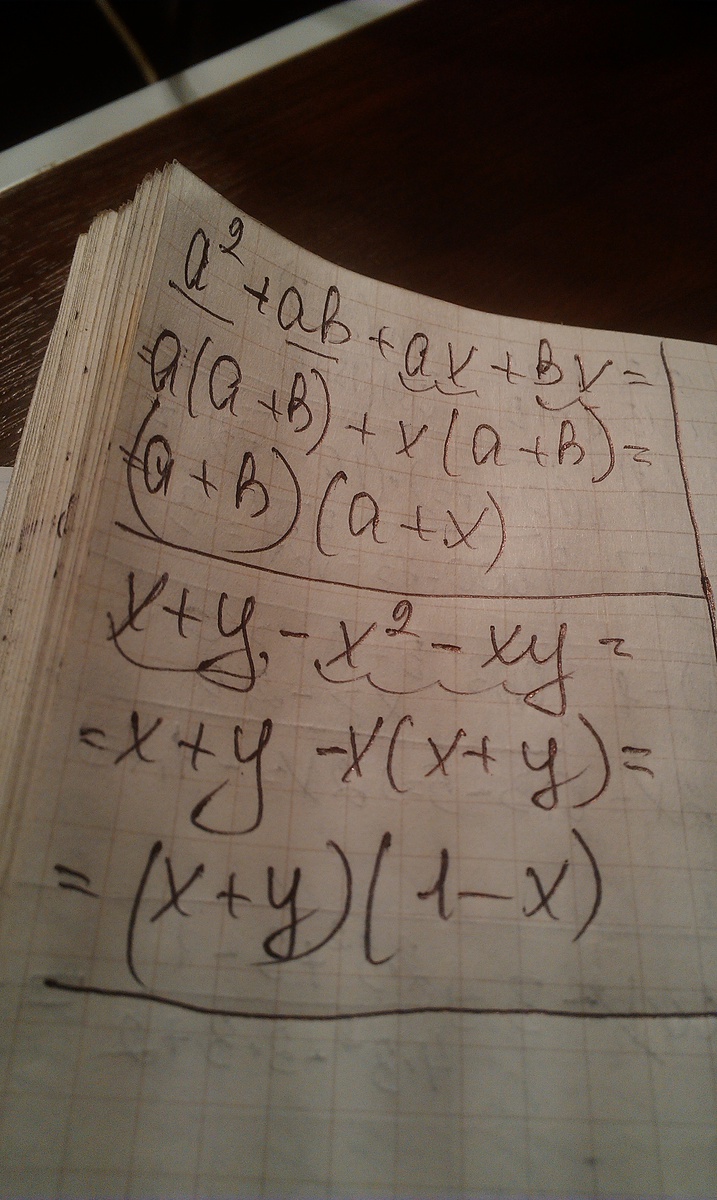 a² + ab + ax + bx =
= a(a + b) + x(a + b) =
= (a + b)(a + x)
x + y - x² - xy =
= x + y - x(x + y) =
= (x + y)(1 - x)